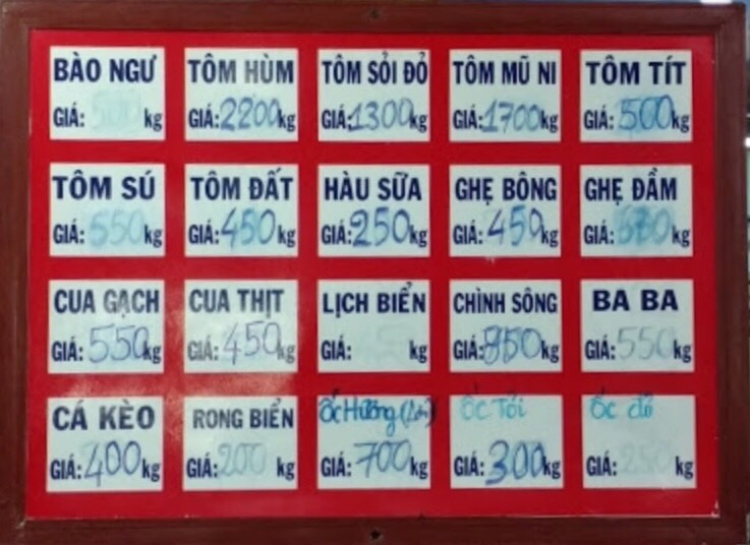 BÀO NGƯ
GIÁ: 500 kg
TÔM HÙM
GIÁ: 2200 kg
TÔM SỎI ĐỎ
GIÁ: 1300 kg
TÔM MŨ NI
GIÁ: 1700 kg
TÔM TÍT
GIÁ: 500 kg
TÔM SÚ
GIÁ: 550 kg
TÔM ĐẤT
GIÁ: 450 kg
HÀU SỮA
GIÁ: 250 kg
GHẸ BÔNG
GIÁ: 450 kg
GHẸ ĐẦM
GIÁ: kg
CUA GẠCH
GIÁ: 550 kg
CUA THỊT
GIÁ: 450 kg
LỊCH BIỂN
GIÁ: kg
CHÌNH SÔNG
GIÁ: 850 kg
BA BA
GIÁ: 550 kg
CÁ KÈO
GIÁ: 400 kg
RONG BIỂN
GIÁ: 200 kg
Ốc Hương
GIÁ: 700 kg
ốc Tỏi
GIÁ: 300 kg
ốc đỏ
GIÁ: 250 kg